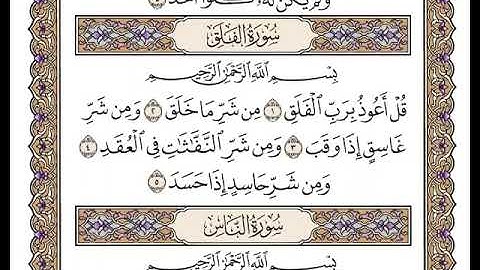 وَلَمْ يَكُن لَّهُۥ كُفُوًا أَحَدٌۢ ٤
سُورَةُ الفَلَقِ
بِسْمِ ٱللَّهِ ٱلرَّحْمَٰنِ ٱلرَّحِيمِ
قُلْ أَعُوذُ بِرَبِّ ٱلْفَلَقِ ١ مِن شَرِّ مَا خَلَقَ ٢ وَمِن شَرِّ
غَاسِقٍ إِذَا وَقَبَ ٣ وَمِن شَرِّ ٱلنَّفَّٰثَٰتِ فِي ٱلْعُقَدِ ٤
وَمِن شَرِّ حَاسِدٍ إِذَا حَسَدَ ٥
سُورَةُ النَّاسِ
بِسْمِ ٱللَّهِ ٱلرَّحْمَٰنِ ٱلرَّحِيمِ